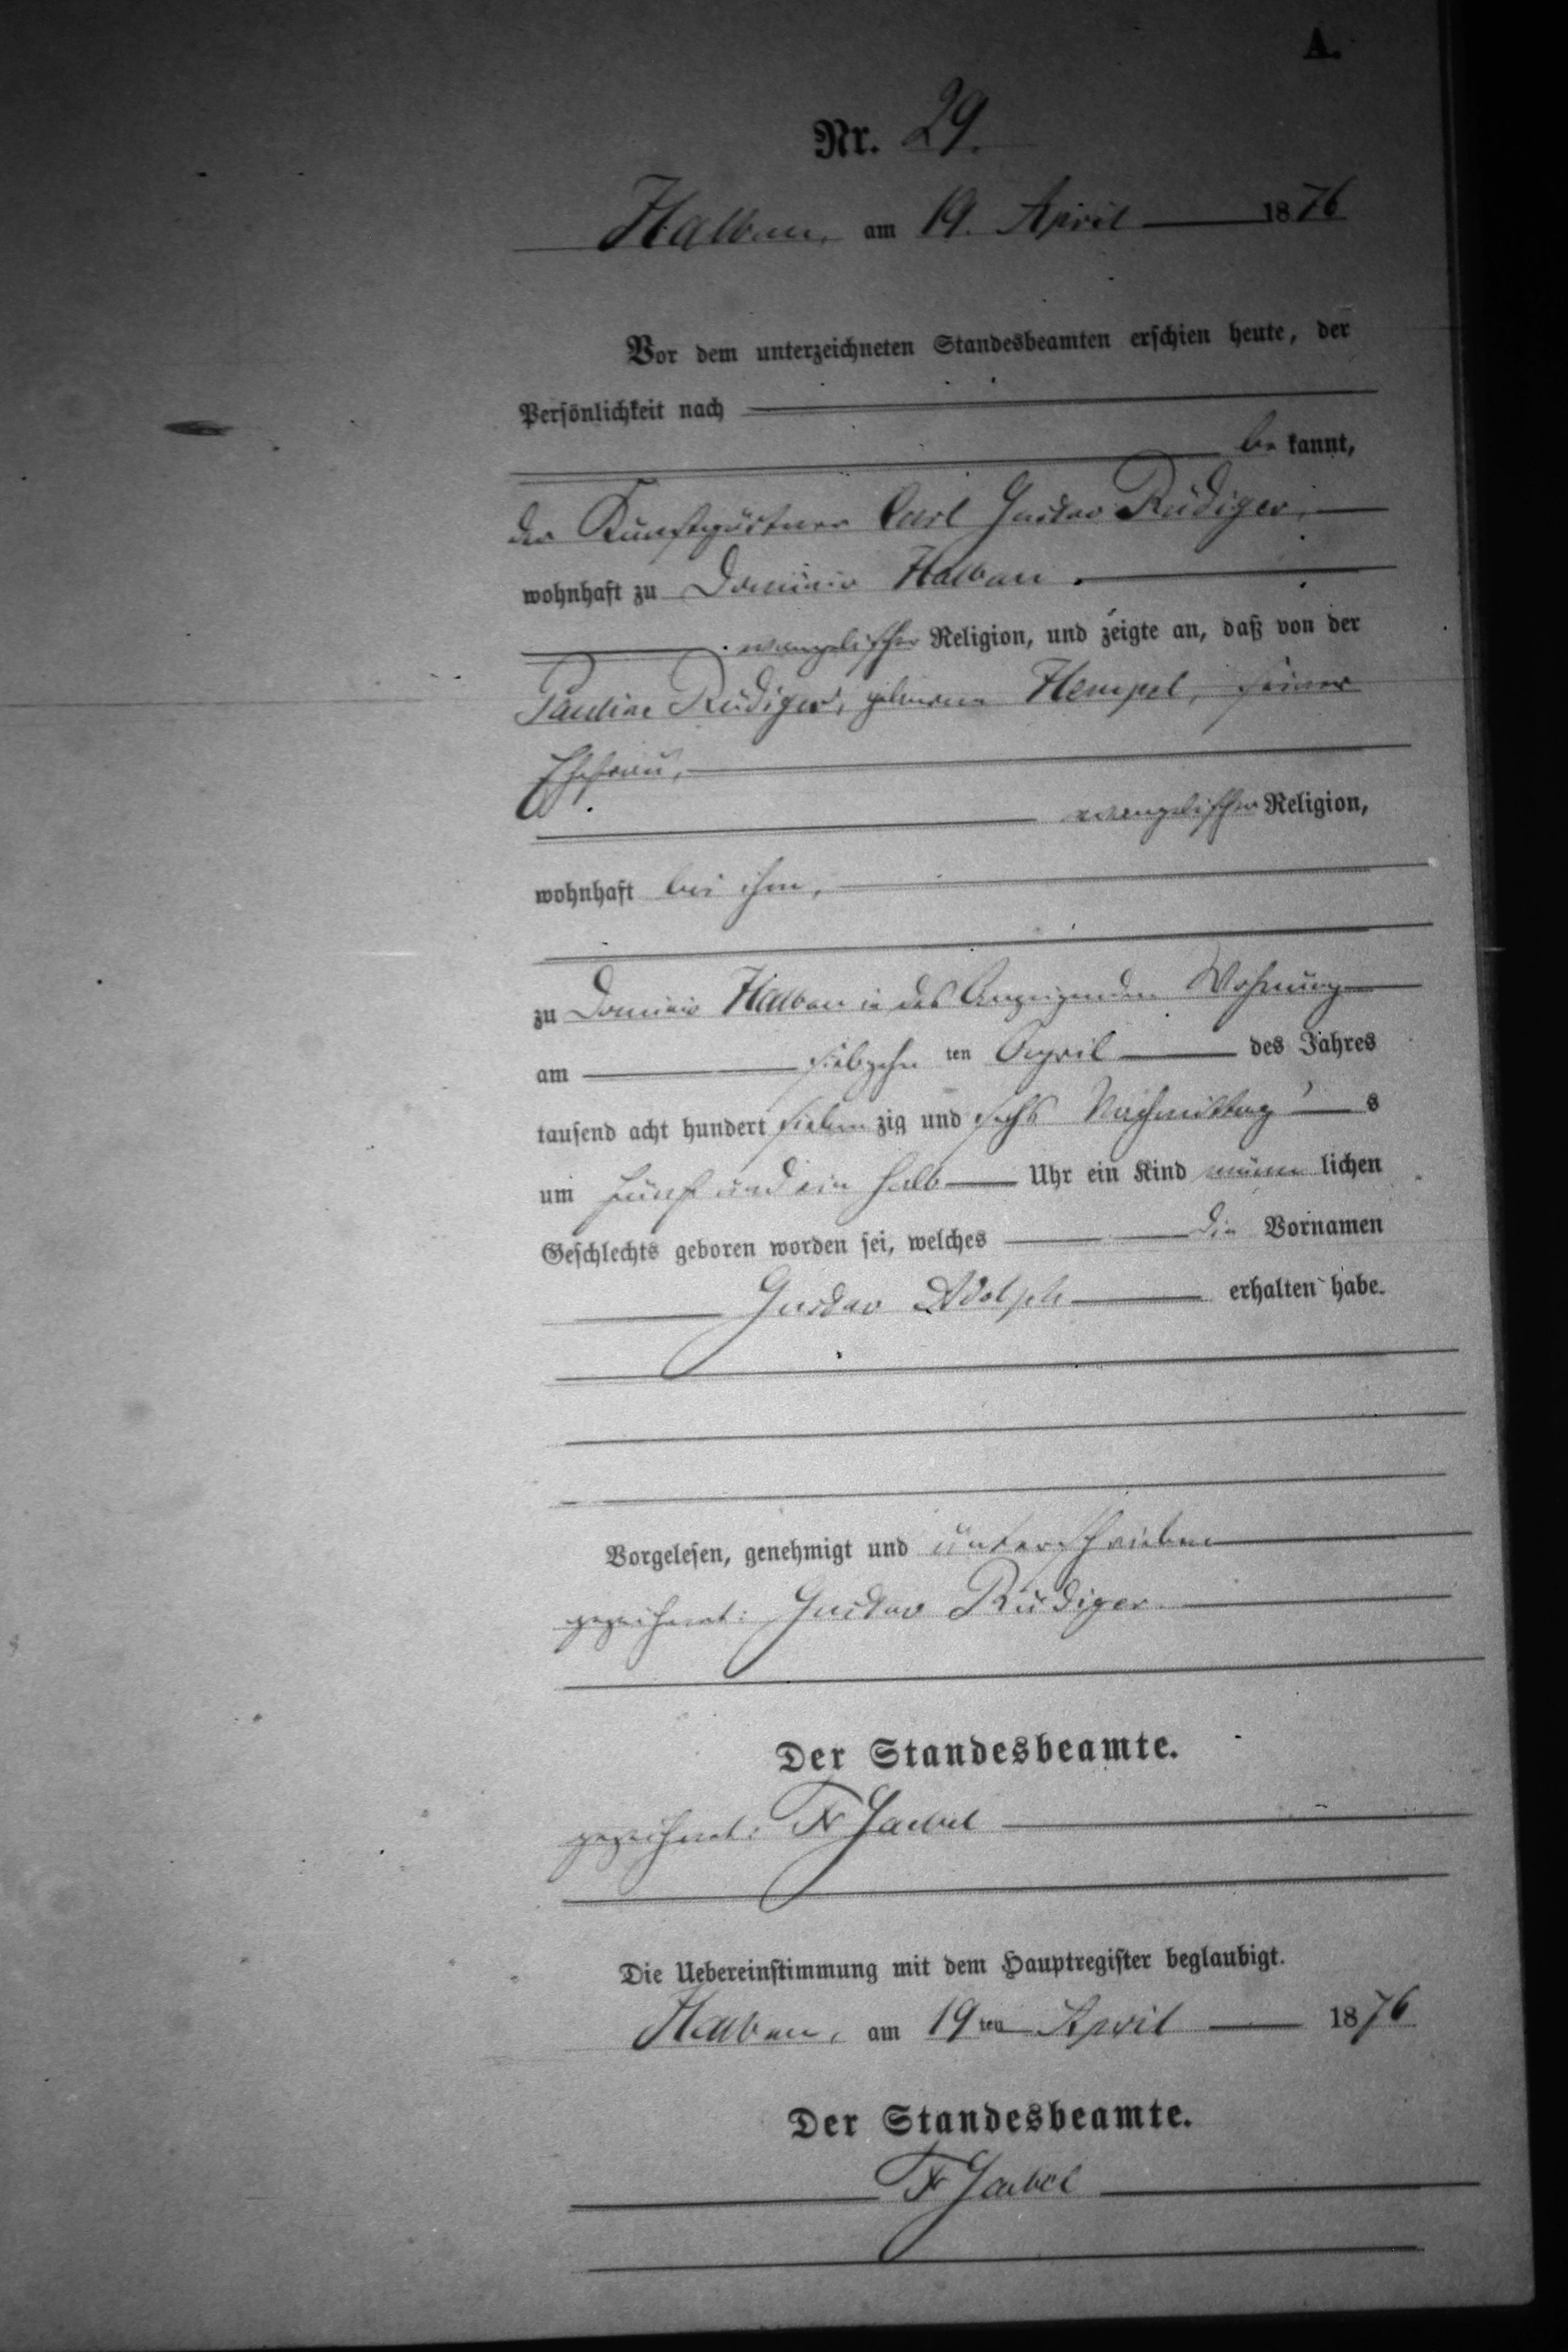 A.
Nr. 29.
Halbau, am 19. April 1876
Vor dem unterzeichneten Standesbeamten erschien heute, der
Persönlichkeit nach
be kannt,
der Kunstgärtner Carl Gustav Rüdiger,
wohnhaft zu Dominio Halbau.
evangelischer Religion, und zeigte an, daß von der
Pauline Rüdiger, geborene Hempel, seiner
Ehefrau,
evangelischer Religion,
wohnhaft bei ihm,
zu Dominio Halbau in des Anzeigenden Wohnung
am siebzehn ten April des Jahres
tausend acht hundert sieben zig und sechs Nachmittag s
um fünf und ein halb Uhr ein Kind männ lichen
Geschlechts geboren worden sei, welches die Vornamen
Gustav Adolph erhalten habe.
Vorgelesen, genehmigt und unterschrieben
gezeichnet: Gustav Rüdiger
Der Standesbeamte.
gezeichnet:
Die Uebereinstimmung mit dem Hauptregister beglaubigt.
Halbau, am 19ten April 1876
Der Standesbeamte.